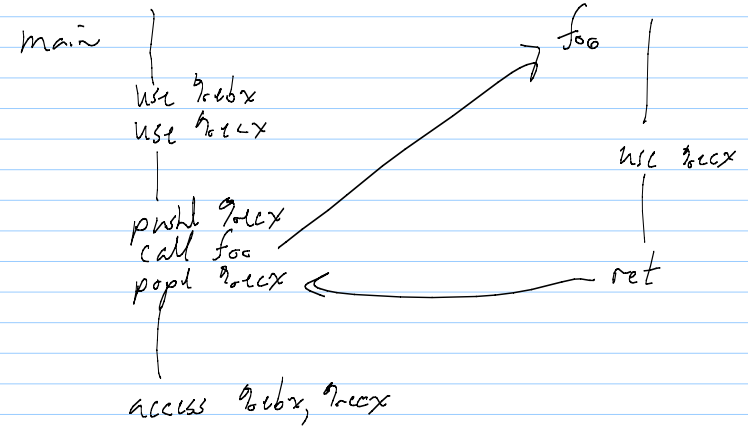 main
use %ebx
use %ecx
pushl %ecx
call foo
popl %ecx
access %ebx, %ecx
foo
use %ecx
ret